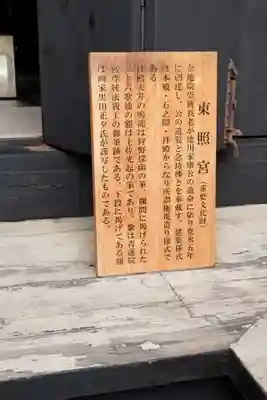 東照宮(重要文化財)
金地院崇傳長老が徳川家康公の遺命に依り寛永五年
に創建し、公の遺髪と念持佛とを奉戴す。建築様式
は本殿・石之間・拝殿からなり所謂権現造り様式で
ある。
天井の鳴龍は狩野探幽の筆、欄間に掲げられた
三十六歌仙の額は土佐光起の筆であり、歌は青蓮院
宮尊純法親王の御筆跡である。下段に掲げてある額
は画家黒田正夕氏が謹写したものである。